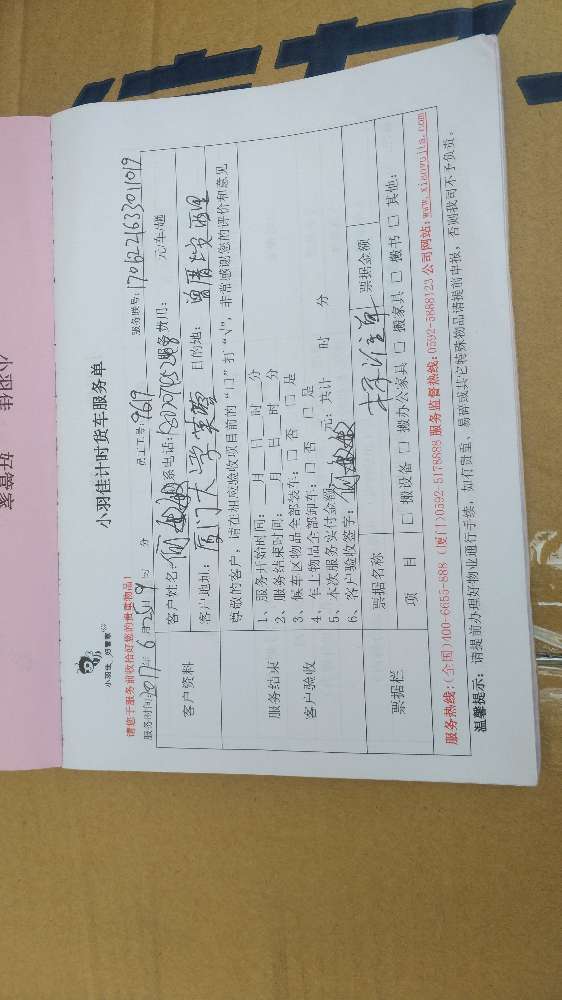 小羽佳 好管家
小羽佳计时货车服务单
请您于服务前收拾好您的贵重物品！
服务时间：2017年6月2日9时 分 员工工号：9619 服务联号：170621633011019
客户资料
客户姓名： 联系电话： 服务费用： 元/车/趟
客户地址：厦门大学芙蓉 目的地：曾厝垵
服务结束
客户验收
尊敬的客户，请在相应验收项目前的“口”打“√”，非常感谢您的评价和意见
1、服务开始时间： 月 日 时 分
2、服务结束时间： 月 日 时 分
3、候车区物品全部装车：□ 否 □ 是
4、车上物品全部卸车：□ 否 □ 是
5、本次服务实付金额 元；共计 时 分
6、客户验收签字：
票据栏
票据名称 票据金额
项 目 □ 搬设备 □ 搬办公家具 □ 搬家具 □ 搬书 □ 其他：
服务热线：(全国)400-6655-888 (厦门)0592-5178888 服务监督热线：0592-5888123 公司网站：www.xiaoyujia.com
温馨提示：请提前办理好物业通行手续，如有贵重、易碎或其它特殊物品请提前申报，否则我司不予负责。